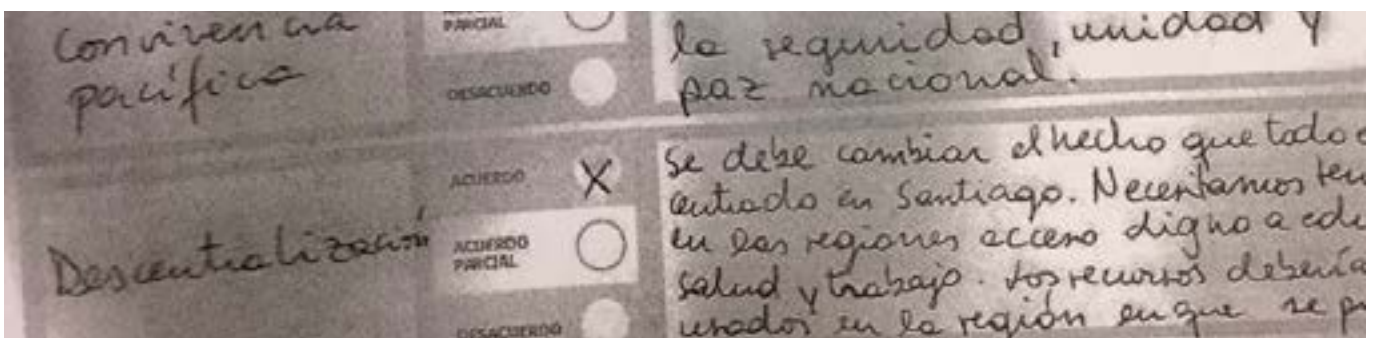 Convivencia
pacífica
PARCIAL
DESACUERDO
la seguridad, unidad y
paz nacional.
Descentralización
ACUERDO
X
ACUERDO
PARCIAL
DESACUERDO
Se debe cambiar el hecho que todo
centrado en Santiago. Necesitamos ten
en las regiones acceso digno a edu
salud y trabajo. Los recursos debería
usados en la región en que se p